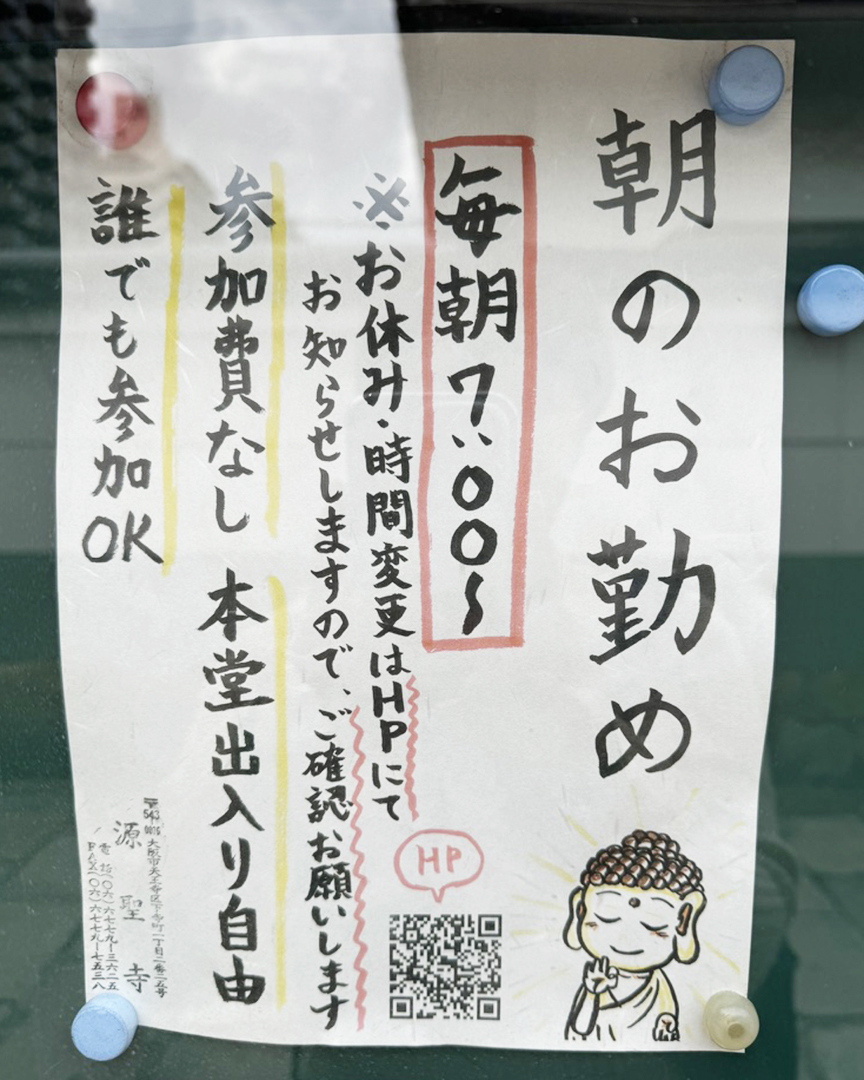 朝のお勤め
毎朝7:00〜
※お休み・時間変更はHPにて
お知らせしますので、ご確認お願いします
HP
参加費なし 本堂出入り自由
誰でも参加OK
大阪市天王寺区下寺町一丁目一番二五号
源聖寺